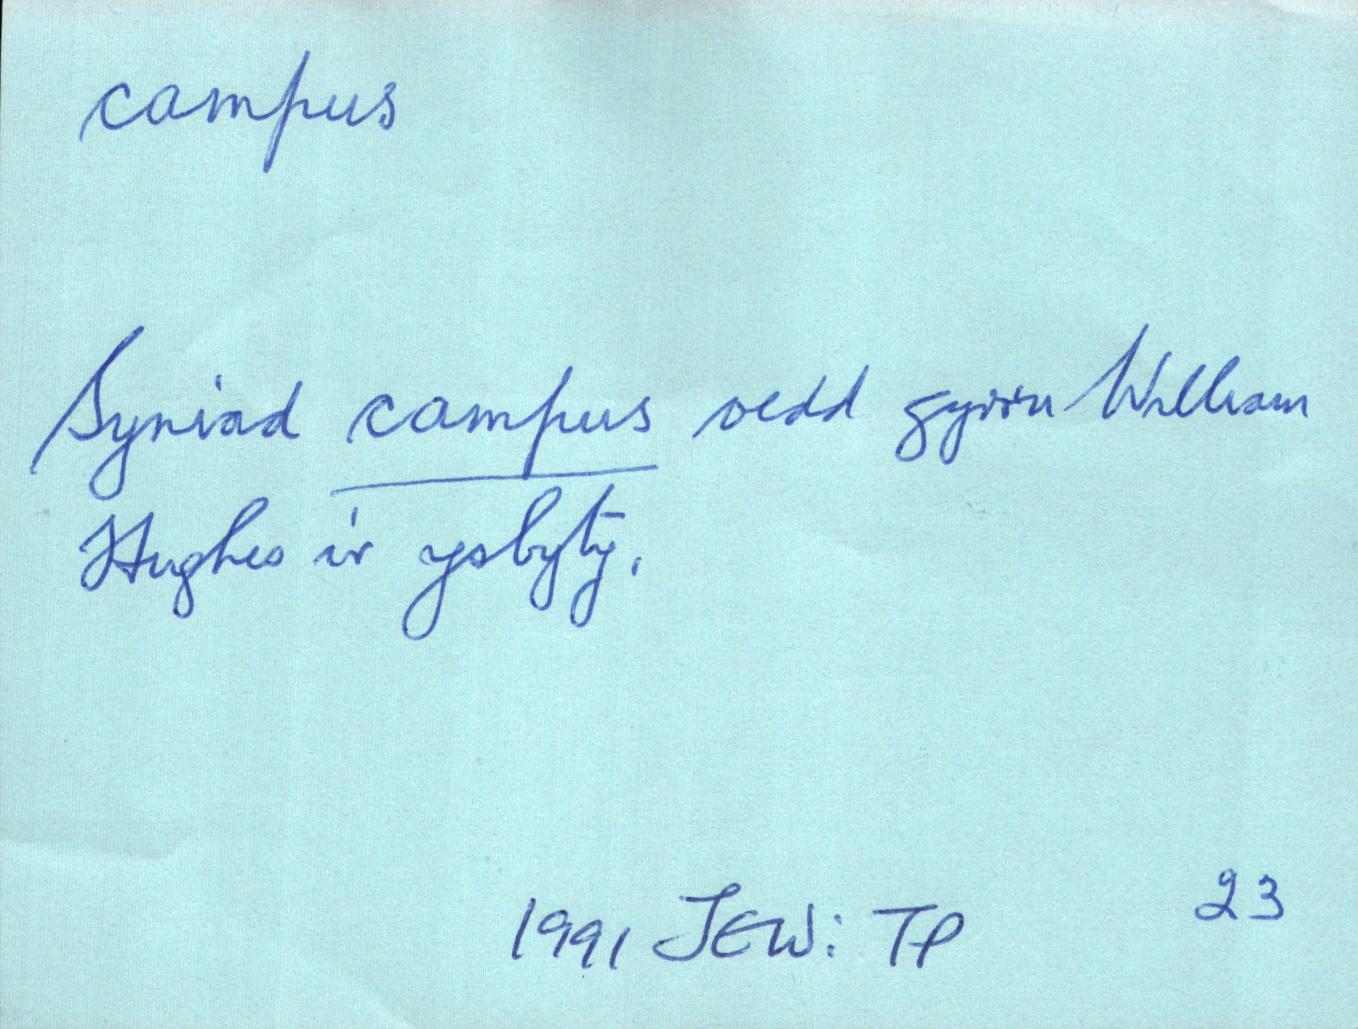 campus
Syniad campus oedd gyrru William
Hughes i'r ysbyty.
1991 JEW: TP 23